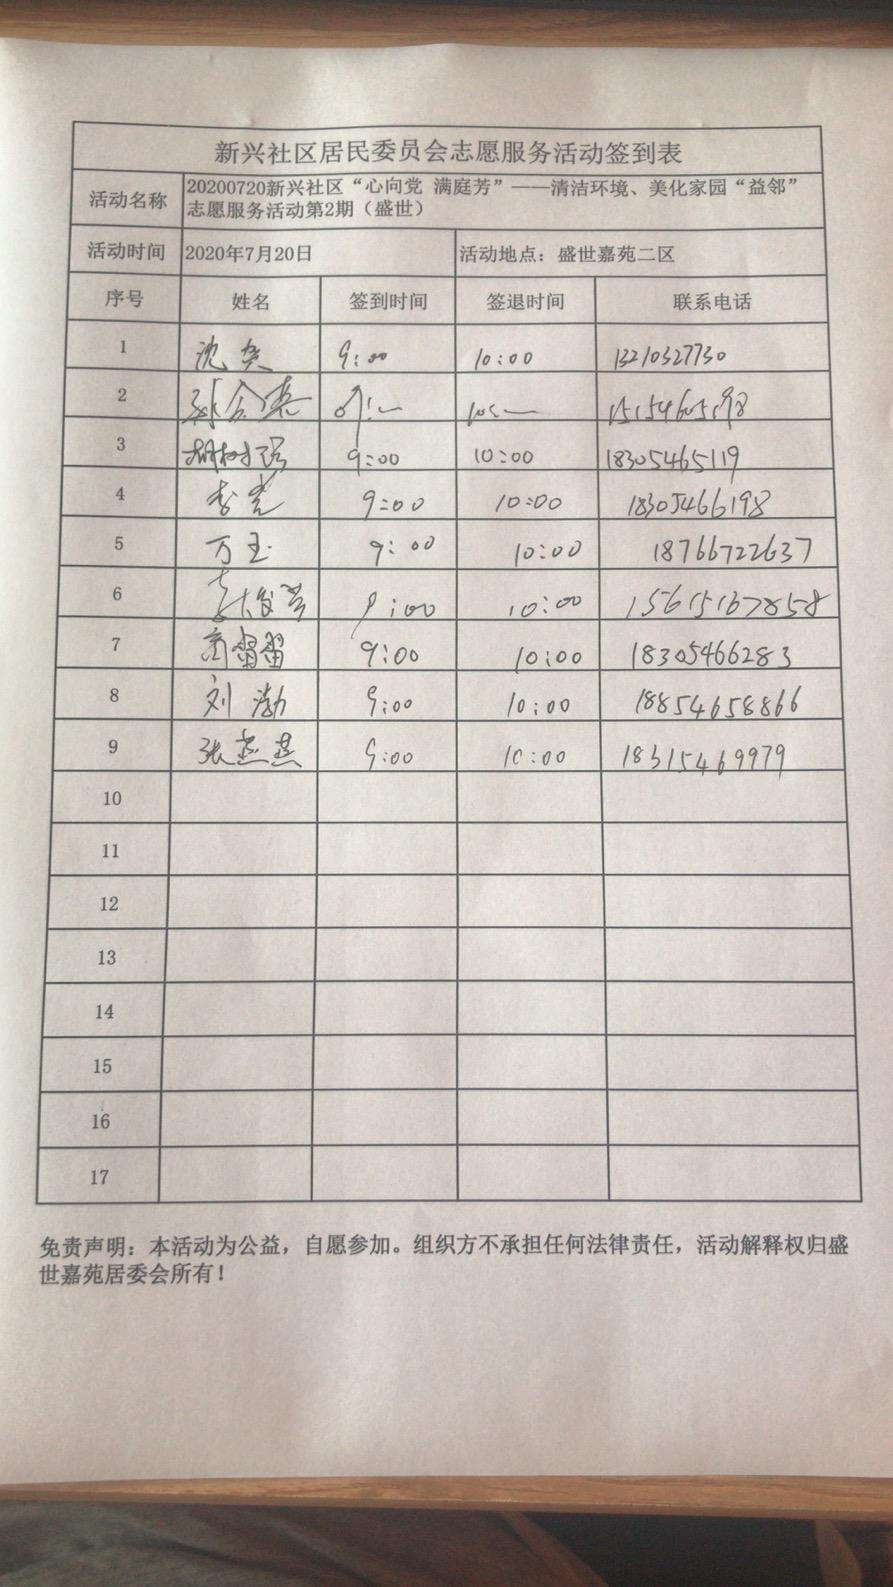 新兴社区居民委员会志愿服务活动签到表
活动名称 20200720新兴社区“心向党 满庭芳”——清洁环境、美化家园“益邻”
志愿服务活动第2期（盛世）
活动时间 2020年7月20日 活动地点：盛世嘉苑二区
序号 姓名 签到时间 签退时间 联系电话
1 沈 9:00 10:00 13210327730
2
3 胡树强 9:00 10:00 18305465119
4 李光 9:00 10:00 18305466198
5 万玉 9:00 10:00 18766722637
6 9:00 10:00 15615167858
7 9:00 10:00 18305466283
8 刘渤 9:00 10:00 18854658866
9 张燕燕 9:00 10:00 18315469979
10
11
12
13
14
15
16
17
免责声明：本活动为公益，自愿参加。组织方不承担任何法律责任，活动解释权归盛
世嘉苑居委会所有！